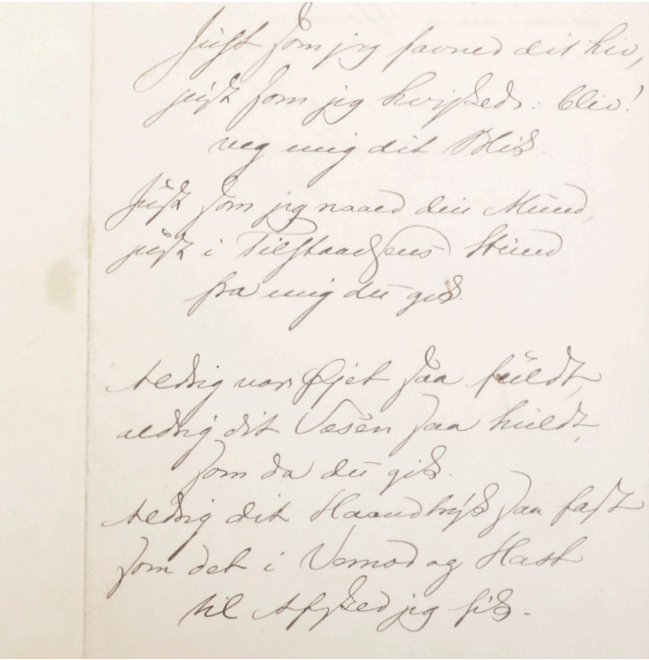 Just som jeg favned dit Liv,
just som jeg hvisked: bliv!
veg mig dit Blik.
Just som jeg naaed din Mund,
just i Tilstaaelsens Stund
fra mig du gik.
Aldrig var Øjet saa fuldt,
aldrig dit Væsen saa huldt,
som da du gik.
Aldrig dit Haandtryk saa fast
som det i Vemod og Hast
til Afsked jeg fik.